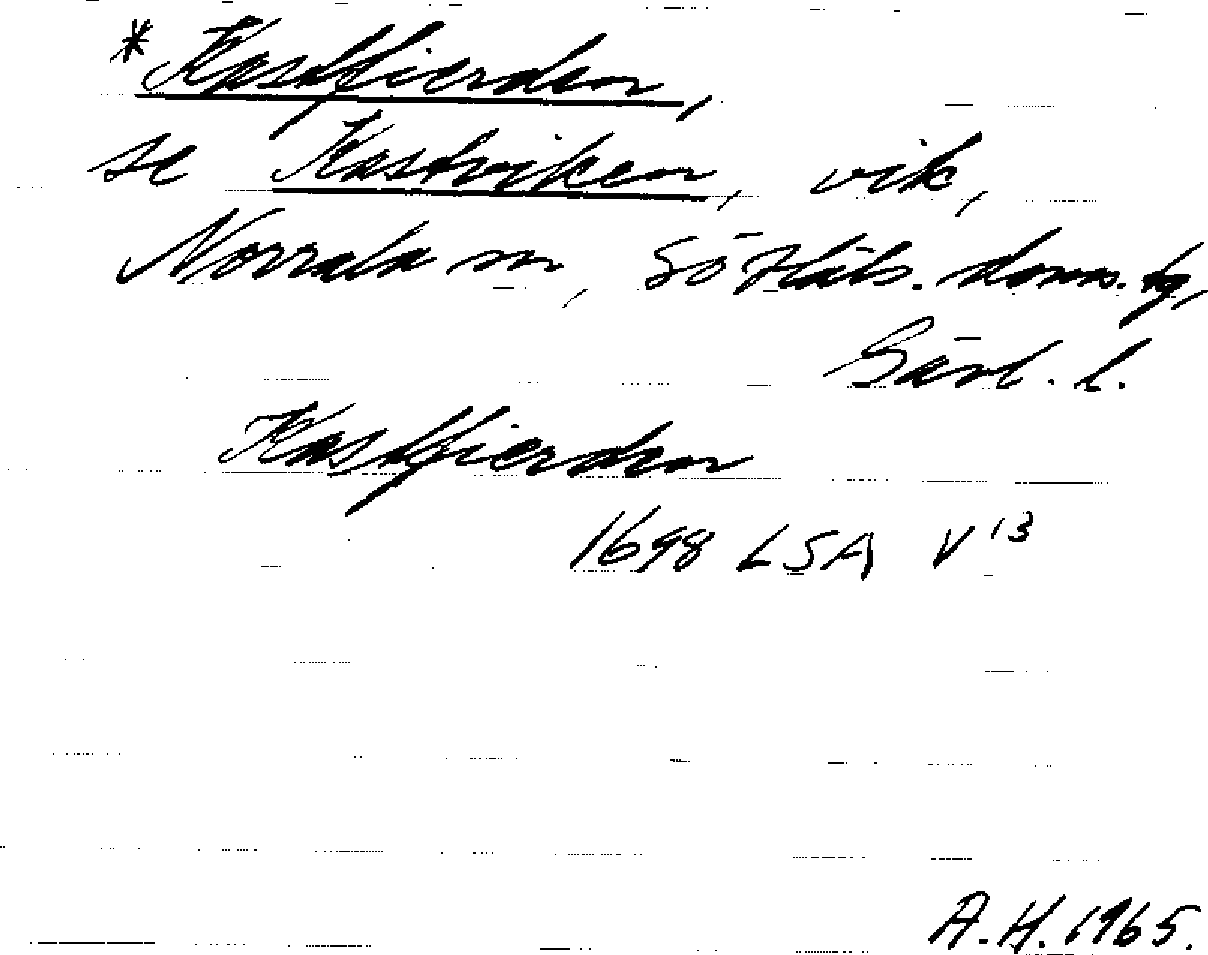 *Kastfierden,
se Kastviken, vik,
Norrala sn, Sö Häls. doms. tg,
Gävl. l.
Kastfierden
1698 LSA V¹³
A.H. 1965.